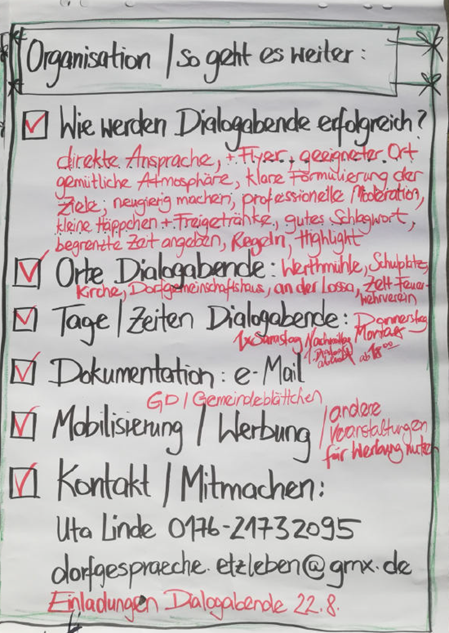 Organisation / So geht es weiter:
Wie werden Dialogabende erfolgreich?
direkte Ansprache, + Flyer, geeigneter Ort
gemütliche Atmosphäre, klare Formulierung der
Ziele, neugierig machen, professionelle Moderation,
kleine Häppchen + Freigetränke, gutes Schlagwort,
begrenzte Zeit angeben, Regeln, Highlight
Orte Dialogabende: Werthmühle, Schupbitz,
Kirche, Dorfgemeinschaftshaus, an der Lossa, Zelt Feuer-
wehrverein
Tage / Zeiten Dialogabende: Donnerstag
1x Samstag Nachmittag Montag
ab 18⁰⁰
Dokumentation: e-Mail
GD / Gemeindeblättchen
Mobilisierung / Werbung / andere
Veranstaltungen
für Werbung nutzen
Kontakt / Mitmachen:
Uta Linde 0176-21732095
dorfgespraeche.etzleben@gmx.de
Einladungen Dialogabende 22.8.